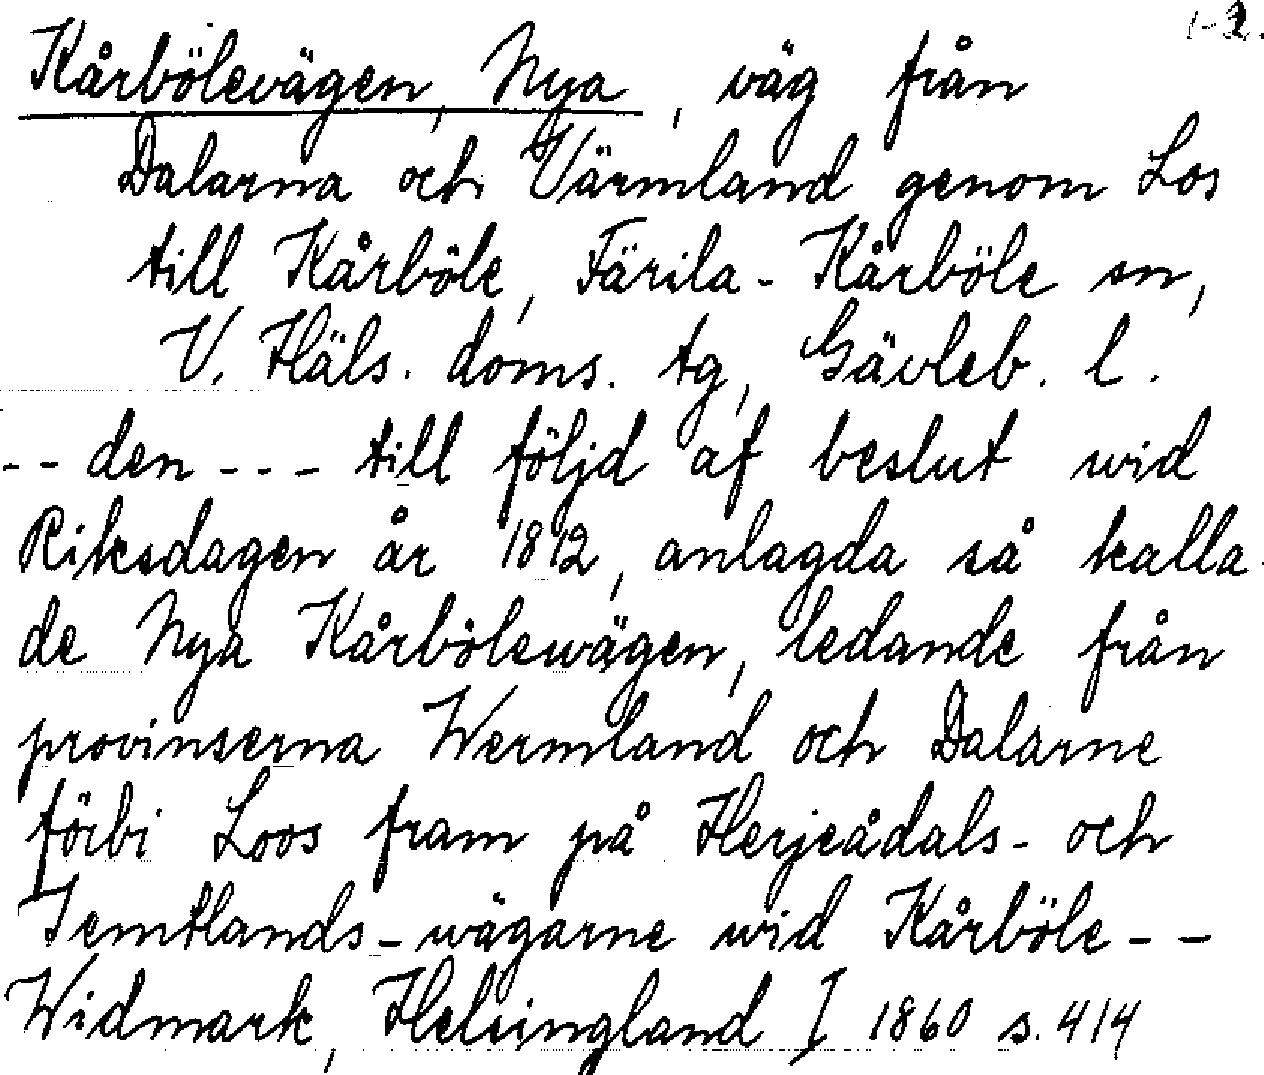 1-2.
Kårbölevägen, Nya, väg från
Dalarna och Värmland genom Los
till Kårböle, Färila-Kårböle sn,
V. Häls. doms. tg, Gävleb. l.
-- den --- till följd af beslut wid
Riksdagen år 1812, anlagda så kalla-
de Nya Kårbölewägen, ledande från
provinserna Wermland och Dalarne
förbi Loos fram på Herjeådals- och
Jemtlands-wägarne wid Kårböle--
Widmark, Helsingland I 1860 s. 414